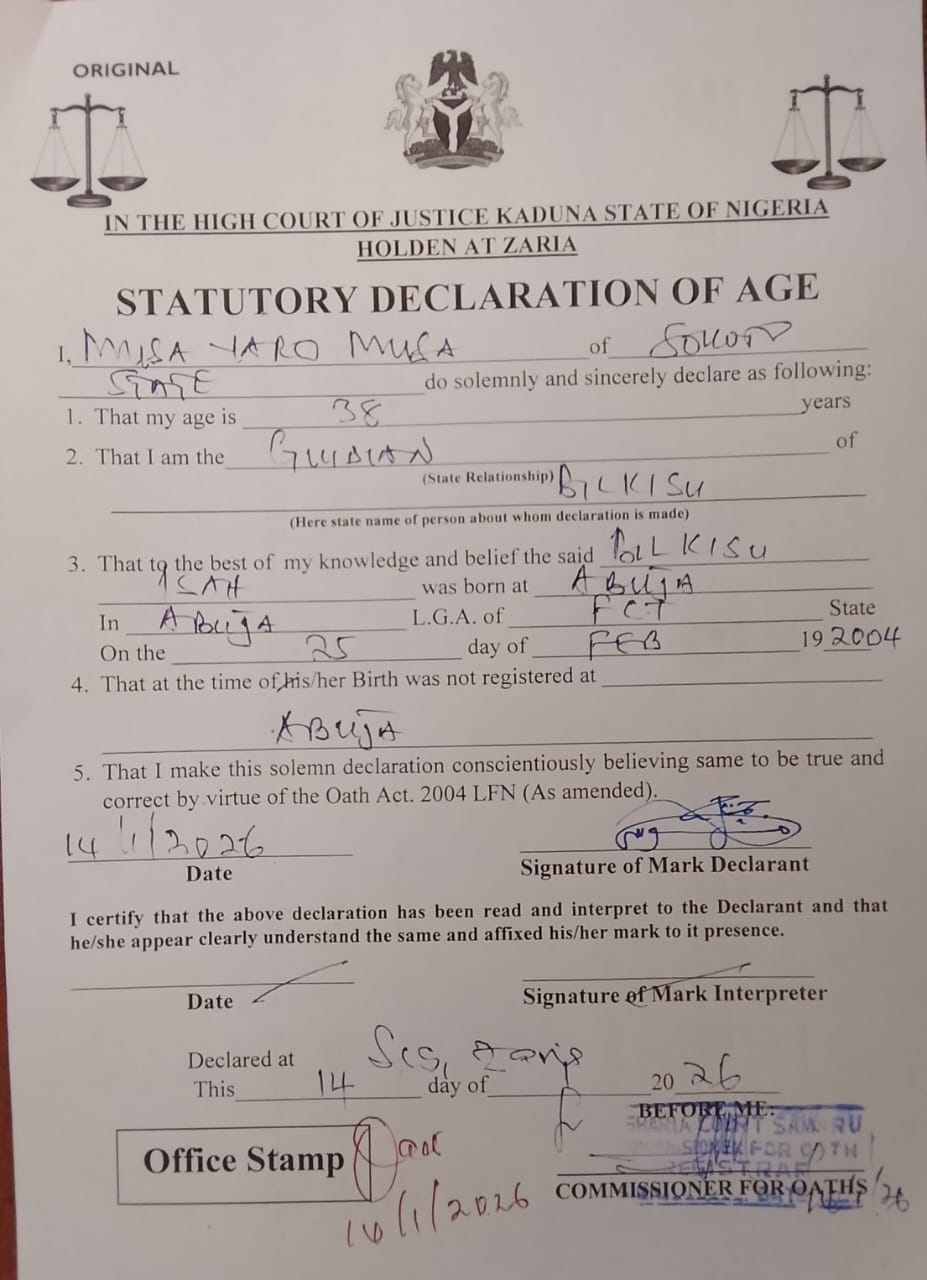 ORIGINAL
IN THE HIGH COURT OF JUSTICE KADUNA STATE OF NIGERIA
HOLDEN AT ZARIA
STATUTORY DECLARATION OF AGE
I, MUSA YARO MUSA of SOKOTO
STATE do solemnly and sincerely declare as following:
1. That my age is 38 years
2. That I am the GUIDIAN of
(State Relationship) BILKISU
(Here state name of person about whom declaration is made)
3. That to the best of my knowledge and belief the said BILKISU
ISAH was born at ABUJA
In ABUJA L.G.A. of FCT State
On the 25 day of FEB 19 2004
4. That at the time of his/her Birth was not registered at
ABUJA
5. That I make this solemn declaration conscientiously believing same to be true and
correct by virtue of the Oath Act. 2004 LFN (As amended).
14/1/2026
Date Signature of Mark Declarant
I certify that the above declaration has been read and interpret to the Declarant and that
he/she appear clearly understand the same and affixed his/her mark to it presence.
Date Signature of Mark Interpreter
Declared at Zaria
This 14 day of 20 26
BEFORE ME:
SHARIA COURT SAMARU
FOR OATH
REGISTRAR
Office Stamp
COMMISSIONER FOR OATHS
14/1/2026